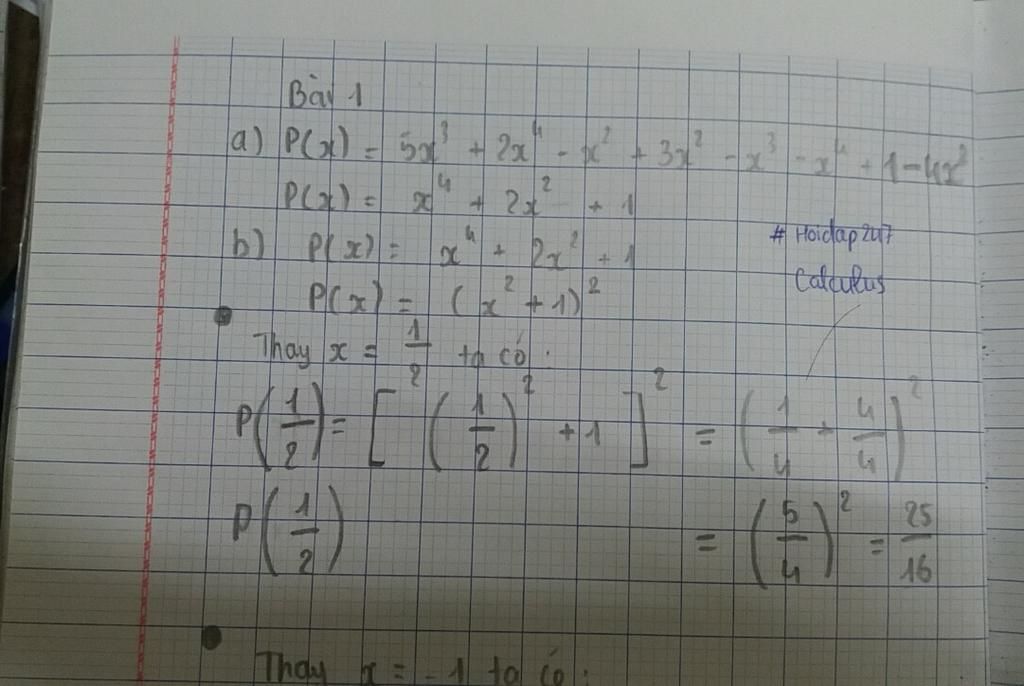 Bài 1
a) P(x) = 5x³ + 2x⁴ - x² + 3x² - x³ - x⁴ + 1 - 4x³
P(x) = x⁴ + 2x² + 1
b) P(x) = x⁴ + 2x² + 1
# Hoidap247
Calculus
P(x) = (x² + 1)²
Thay x = 1/2 ta có:
P(1/2) = [(1/2)² + 1]² = (1/4 + 4/4)²
P(1/2) = (5/4)² = 25/16
Thay x = -1 ta có: